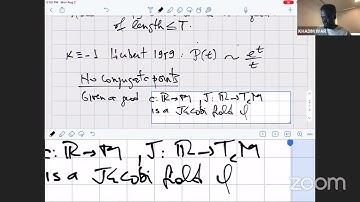 of length ≤ T.
K ≡ -1 Huber 1959 : P(t) ~ e^t/t
No conjugate points
Given a geod c: ℝ → M, J: ℝ → T_c M
is a Jacobi field if
c: ℝ → M, J: ℝ → T_c M
is a Jacobi field if
KHADIM WAR
zoom